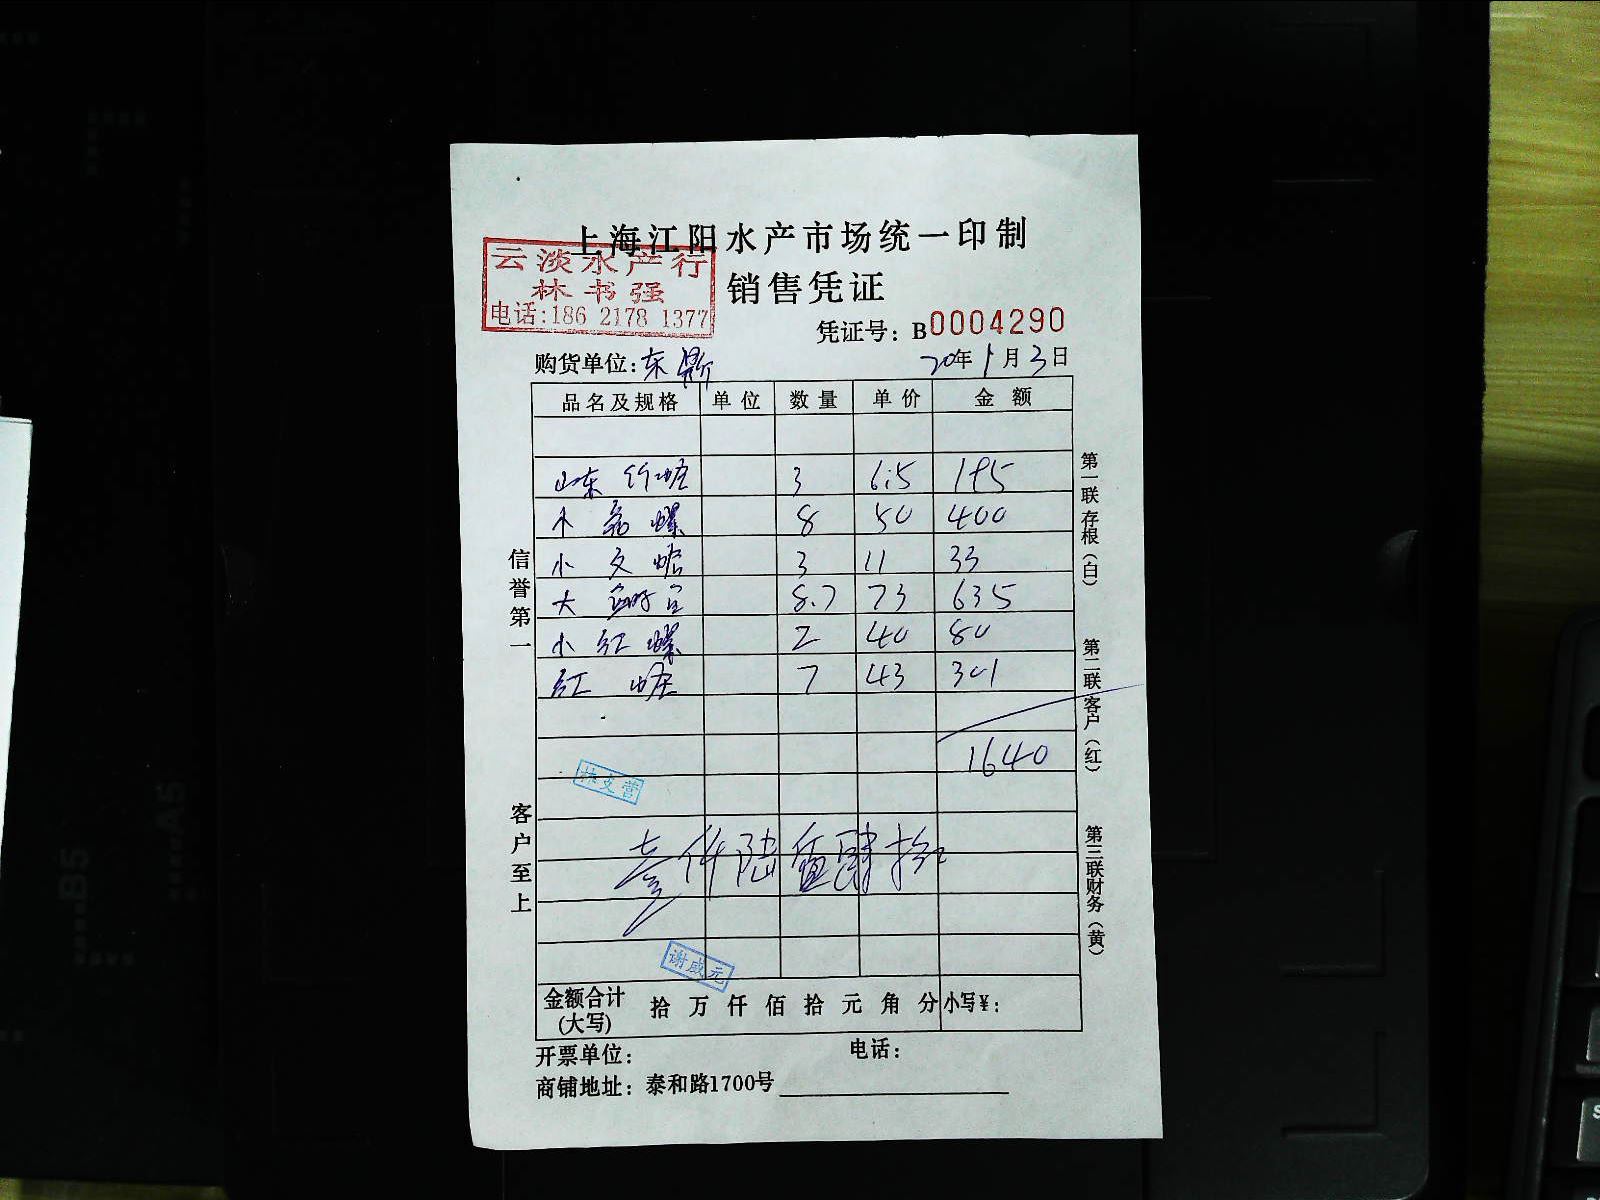 上海江阳水产市场统一印制
云淡水产行
林书强
电话:186 2178 1377
销售凭证
凭证号: B0004290
购货单位:东鼎 20年1月3日
品名及规格 单位 数量 单价 金额
山东 3 65 195
小 螺 8 50 400
小 文 蛤 3 11 33
大 8.7 73 635
小 红 螺 2 40 80
红 7 43 301
1640
仟陆 肆拾
谢成元
金额合计(大写) 拾 万 仟 佰 拾 元 角 分 小写¥:
开票单位: 电话:
商铺地址: 泰和路1700号
信誉第一
客户至上
第一联存根(白)
第二联客户(红)
第三联财务(黄)